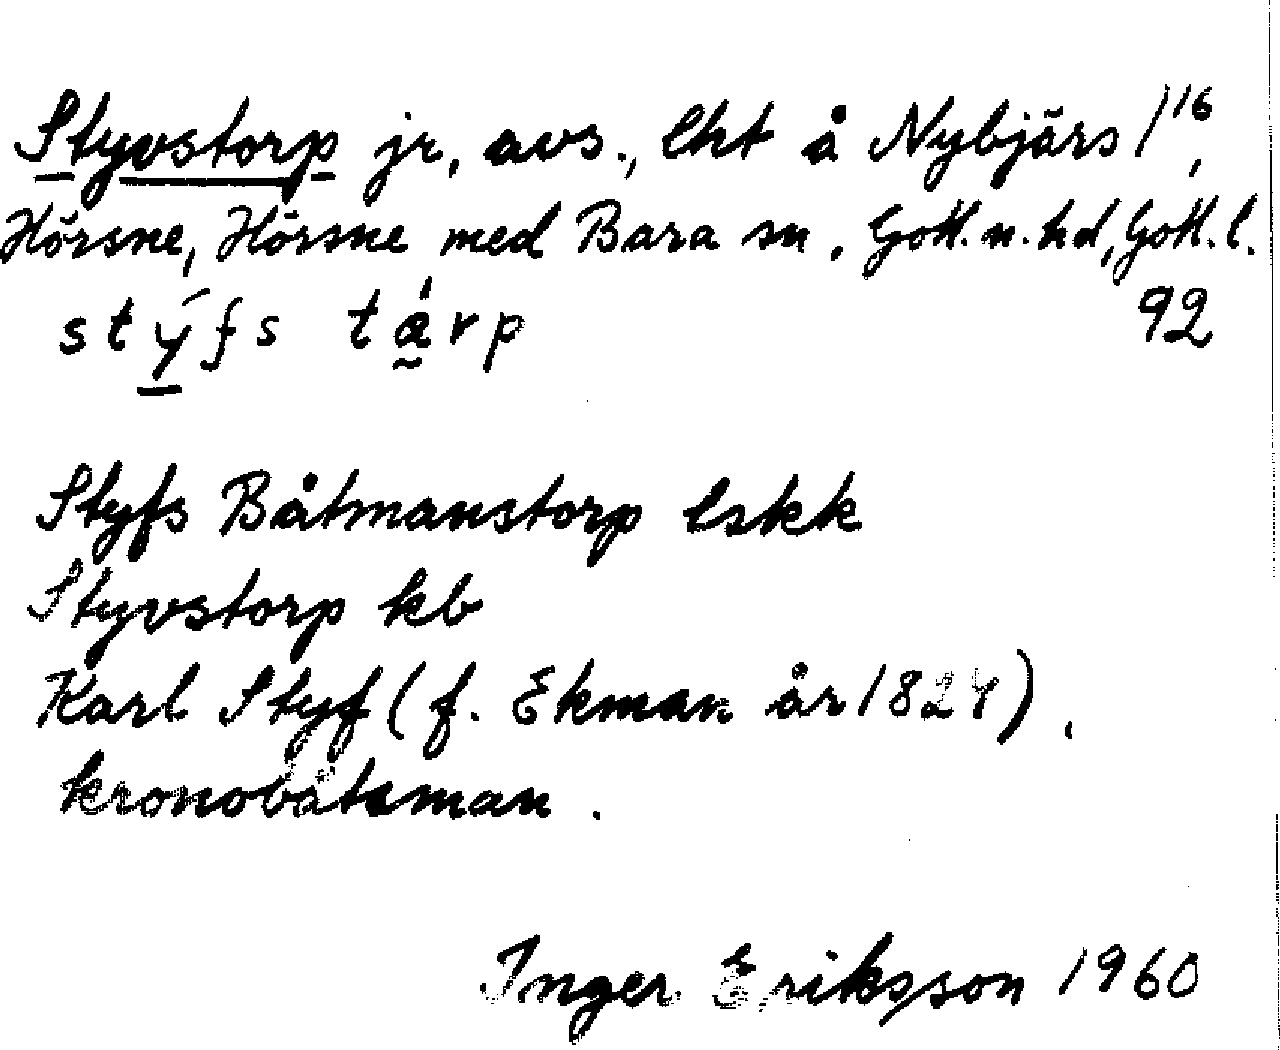 Styvstorp jr, avs., lht å Nybjärs 1¹⁶,
Hörsne, Hörsne med Bara sn, Gotl. n. hd, Gotl. l.
stýfs tárp 92
Styfs Båtmanstorp lskk
Styvstorp kb
Karl Styf (f. Ekman år 1824),
kronobåtsman.
Inger Eriksson 1960